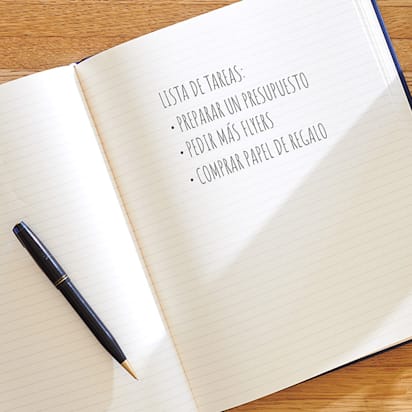 LISTA DE TAREAS:
• PREPARAR UN PRESUPUESTO
• PEDIR MÁS FLYERS
• COMPRAR PAPEL DE REGALO